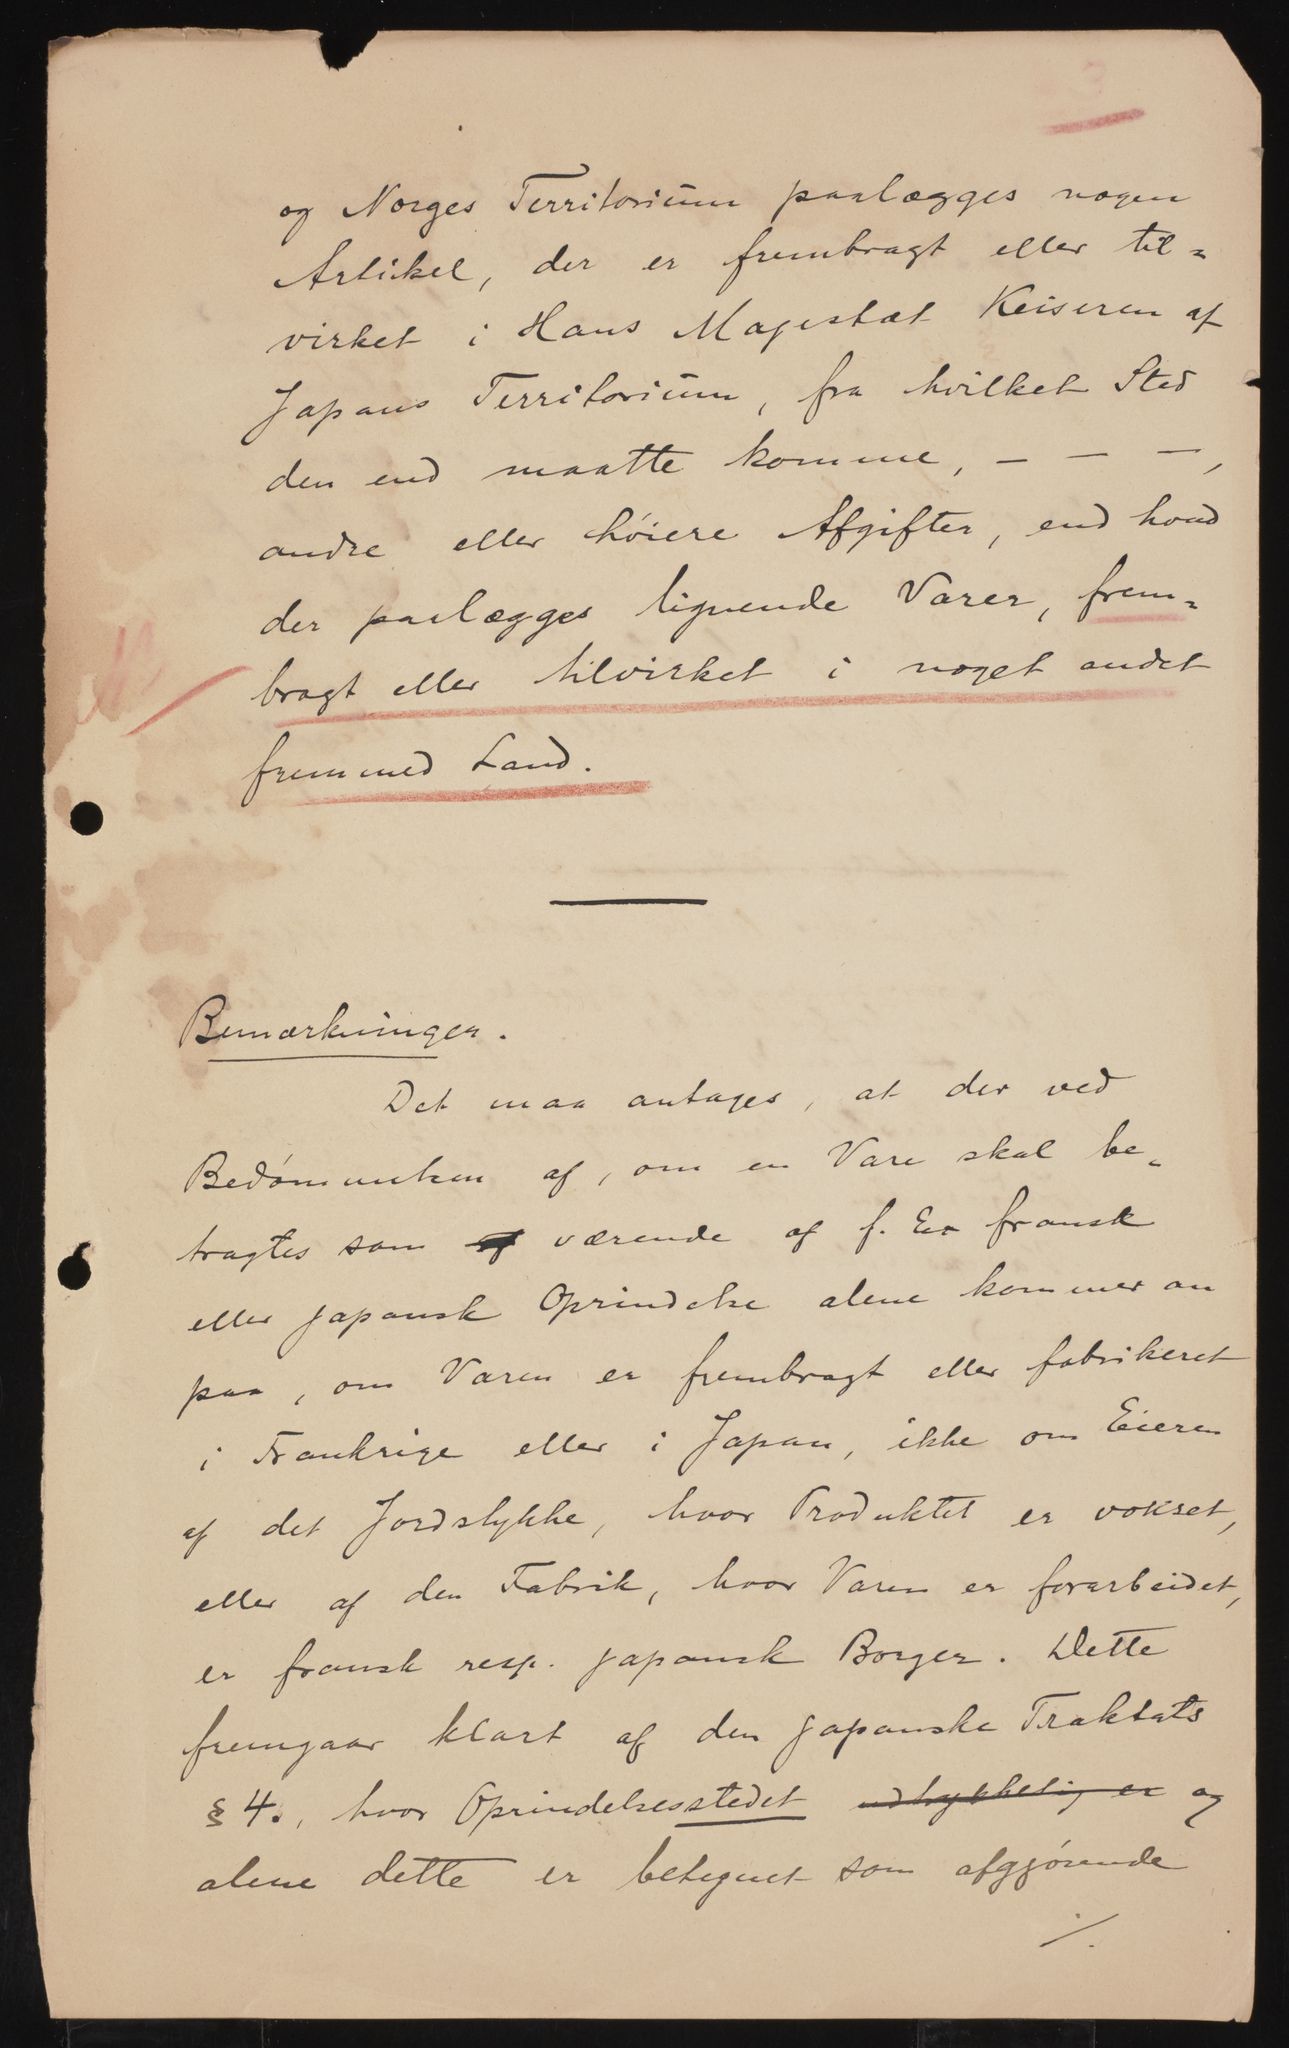 og Norges Territorium paalægges nogen
Artikel, der er frembragt eller til=
virket i Hans Majestæt Keiseren af
Japans Territorium, fra hvilket Sted
den end maatte komme, – – –,
andre eller höiere Afgifter, end hvad
der paalægges lignende Varer, frem=
bragt eller tilvirket i noget andet
fremmed Land.
Bemærkninger.
Det maa antages, at der ved
Bedömmelsen af, om en Vare skal be=
tragtes som af værende af f. Ex fransk
eller japansk Oprindelse alene kommer an
paa, om Varen er frembragt eller fabrikeret
i Frankrige eller i Japan, ikke om Eieren
af det Jordstykke, hvor Produktet er vokset,
eller af den Fabrik, hvor Varen er forarbeidet,
er fransk resp. japansk Borger. Dette
fremgaar klart af den japanske Traktats
§ 4., hvor Oprindelsesstedet udtrykkelig er og
alene dette er betegnet som afgjörende
./.